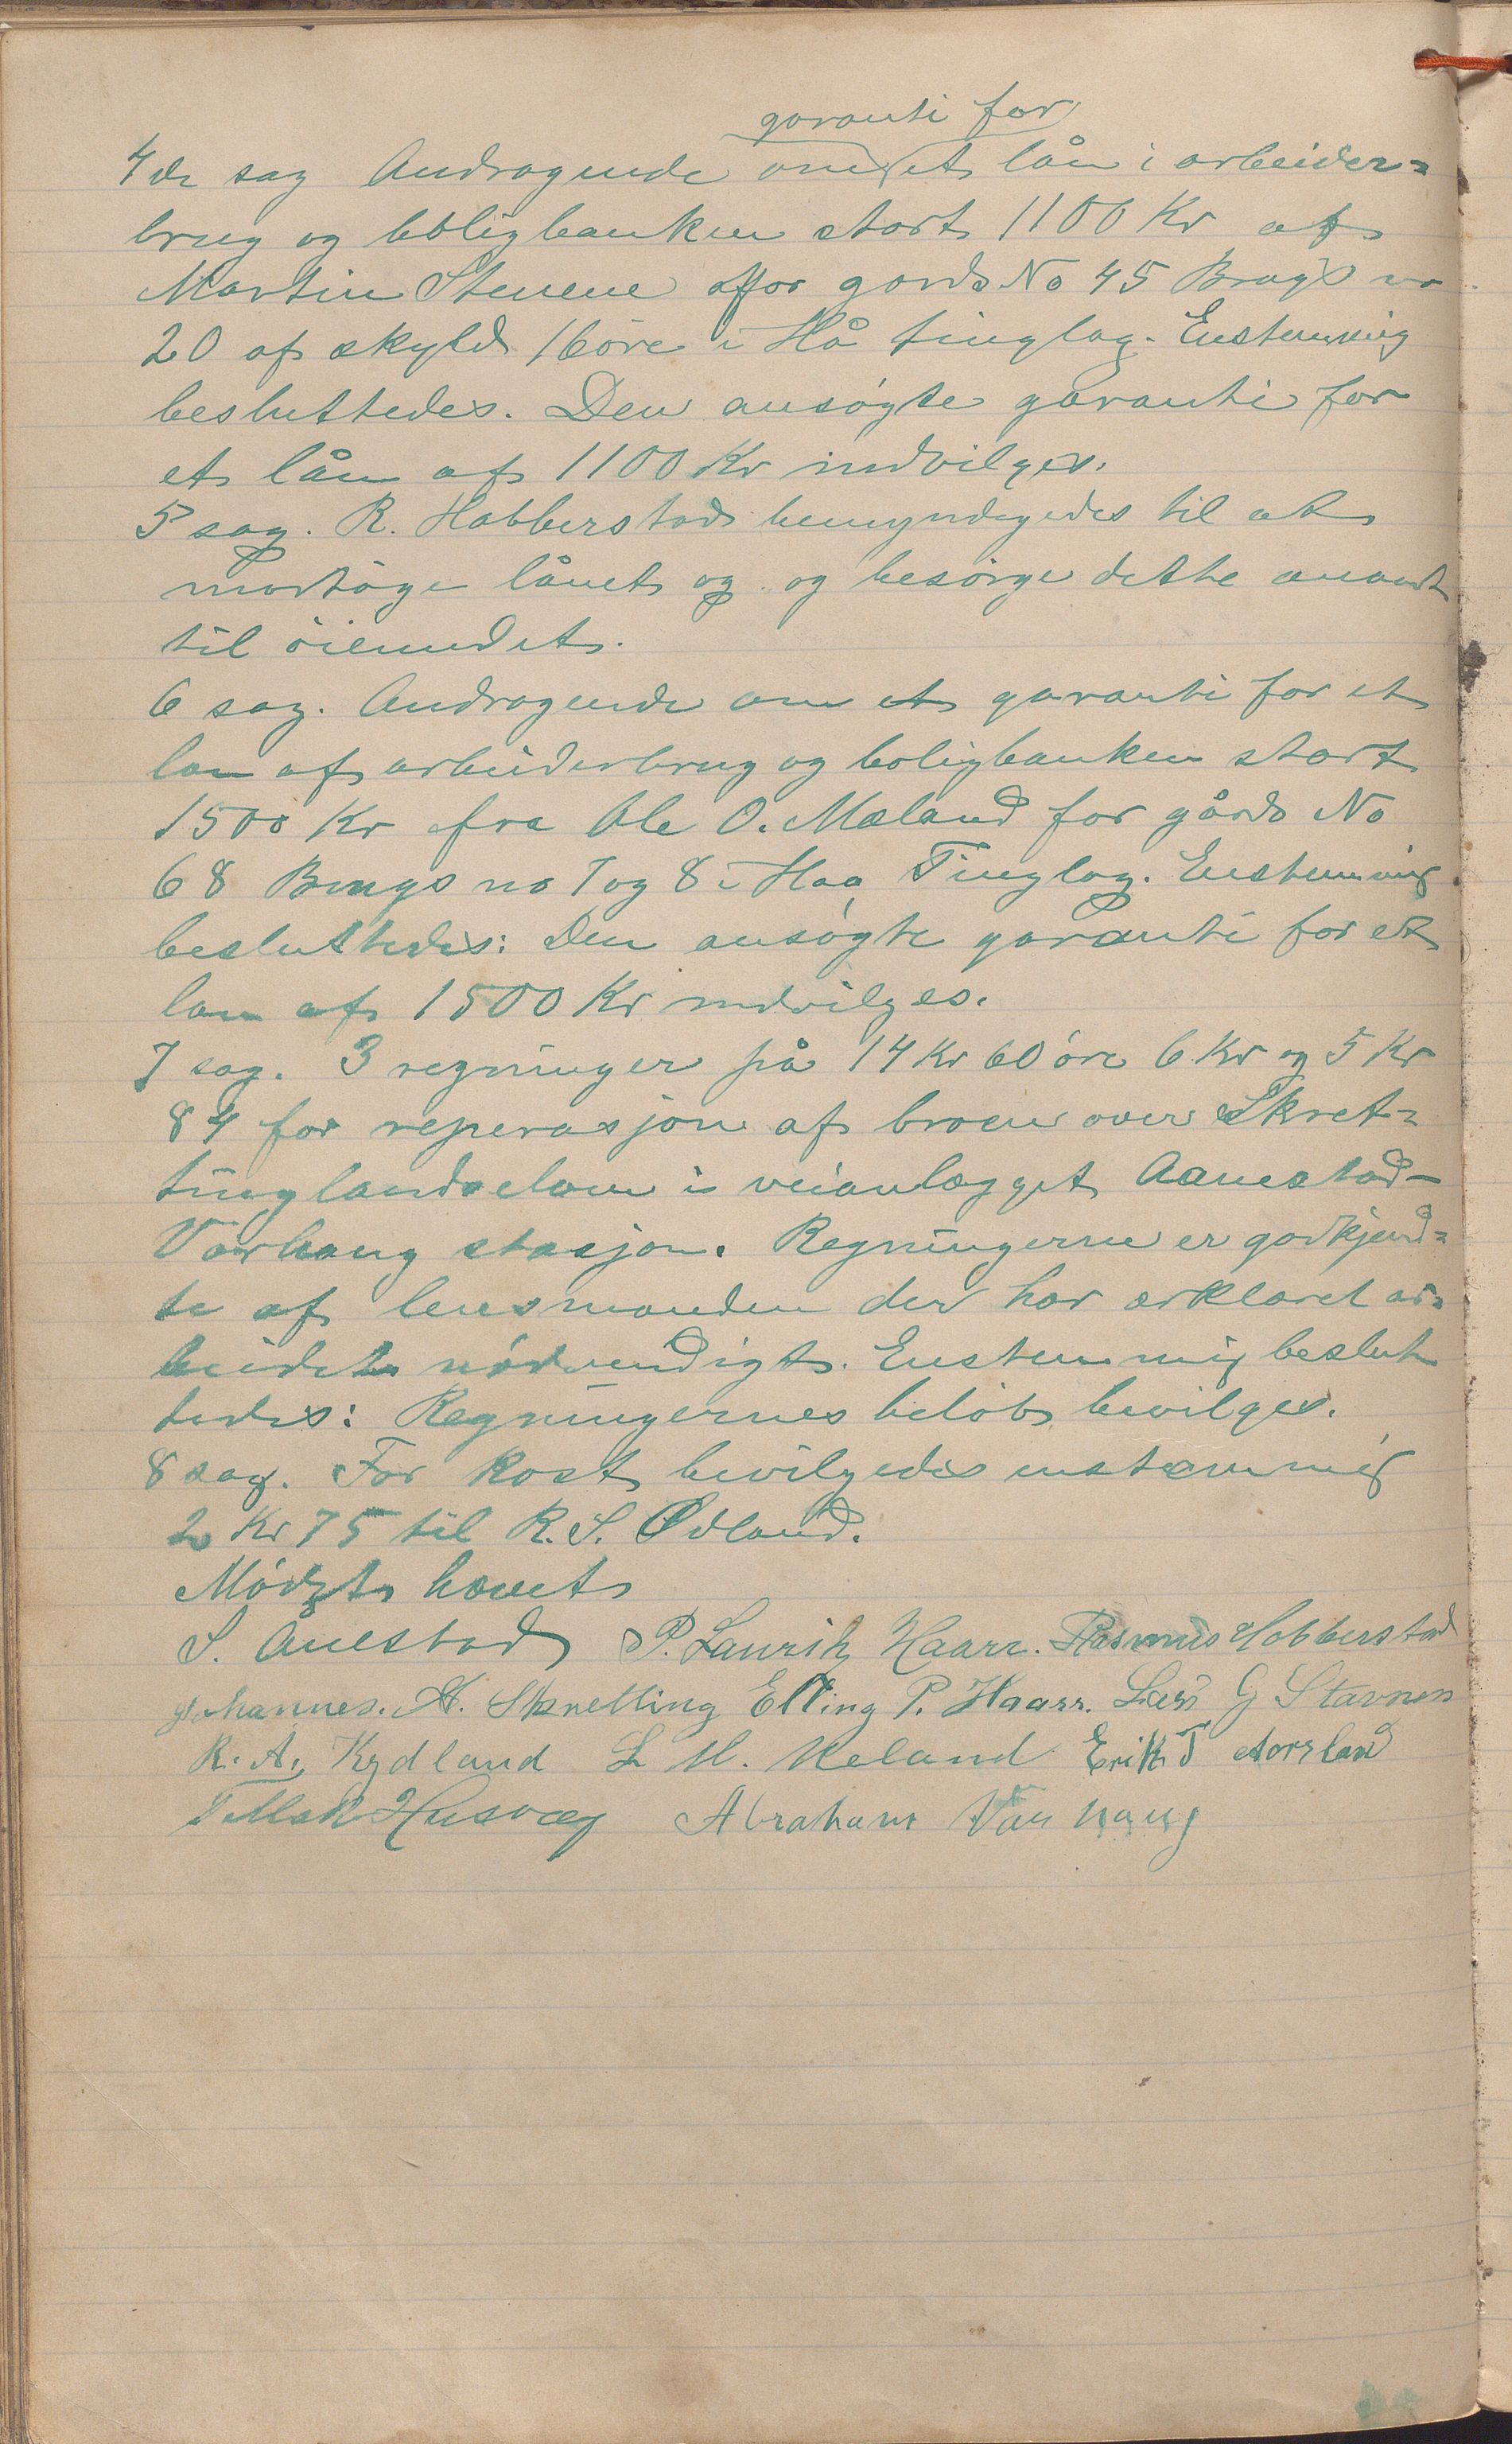 garanti for
4de sag Andragende om et lån i arbeider=
brug og boligbanken stort 1100 Kr af
Martin Stenene for gards No 45 Brugs no
20 af skyld 16 øre i Hå tinglag. Enstemmig
besluttedes. Den ansøgte garanti for
et lån af 1100 Kr indvilges.
5 sag. R. Hobberstad bemyndigedes til at
modtage lånet og og besørge dette anvendt
til øiemedet.
6 sag. Andragende om et garanti for et
lan af arbeiderbrug og boligbanken stort
1500 Kr fra Ole O. Mæland for gårds No
68 Brugs no 7 og 8 i Haa Tinglag. Enstemmig
besluttedes: Den ansøgte garanti for et
lan af 1500 Kr indvilges.
7 sag. 3 regninger på 14 Kr 60 øre 6 Kr og 5 Kr
84 for reperasjon af broen over Skret=
tinglandselven i veianlægget Aanestad-
Varhaug stasjon. Regningerne er godkjend=
te af lensmanden der har erklæret ar=
beidet nødvendigt. Enstemmig beslut
tedes: Regningernes beløb bevilges.
8 sag. For kost bevilgedes enstemmig
2 Kr 75 til R. S. Ødland.
Mødet hævet
S. Ånestad P. Lauritz Haarr. Rasmus Hobberstad
Johannes. A. Skretting Elling P. Haarr. Lars G Stavnem
R. A. Kydland L M. Reland Erik T Aarsland
T Mak Husvæg Abraham Varhaug